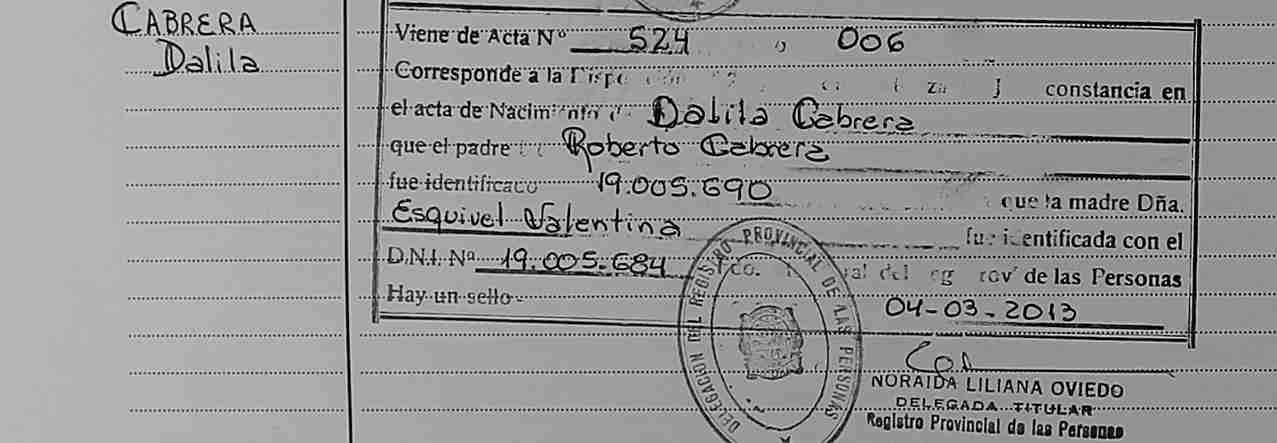 CABRERA
Dalila
Viene de Acta Nº 524 006
Corresponde a la constancia en
el acta de Nacimiento Dalila Cabrera
que el padre Roberto Cabrera
fue identificado 19.005.690 que la madre Dña.
Esquivel Valentina fue identificada con el
D.N.I. Nº 19.005.684 de las Personas
Hay un sello-
04-03-2013
DELEGACION DEL REGISTRO PROVINCIAL DE LAS PERSONAS
NORAIDA LILIANA OVIEDO
DELEGADA TITULAR
Registro Provincial de las Personas